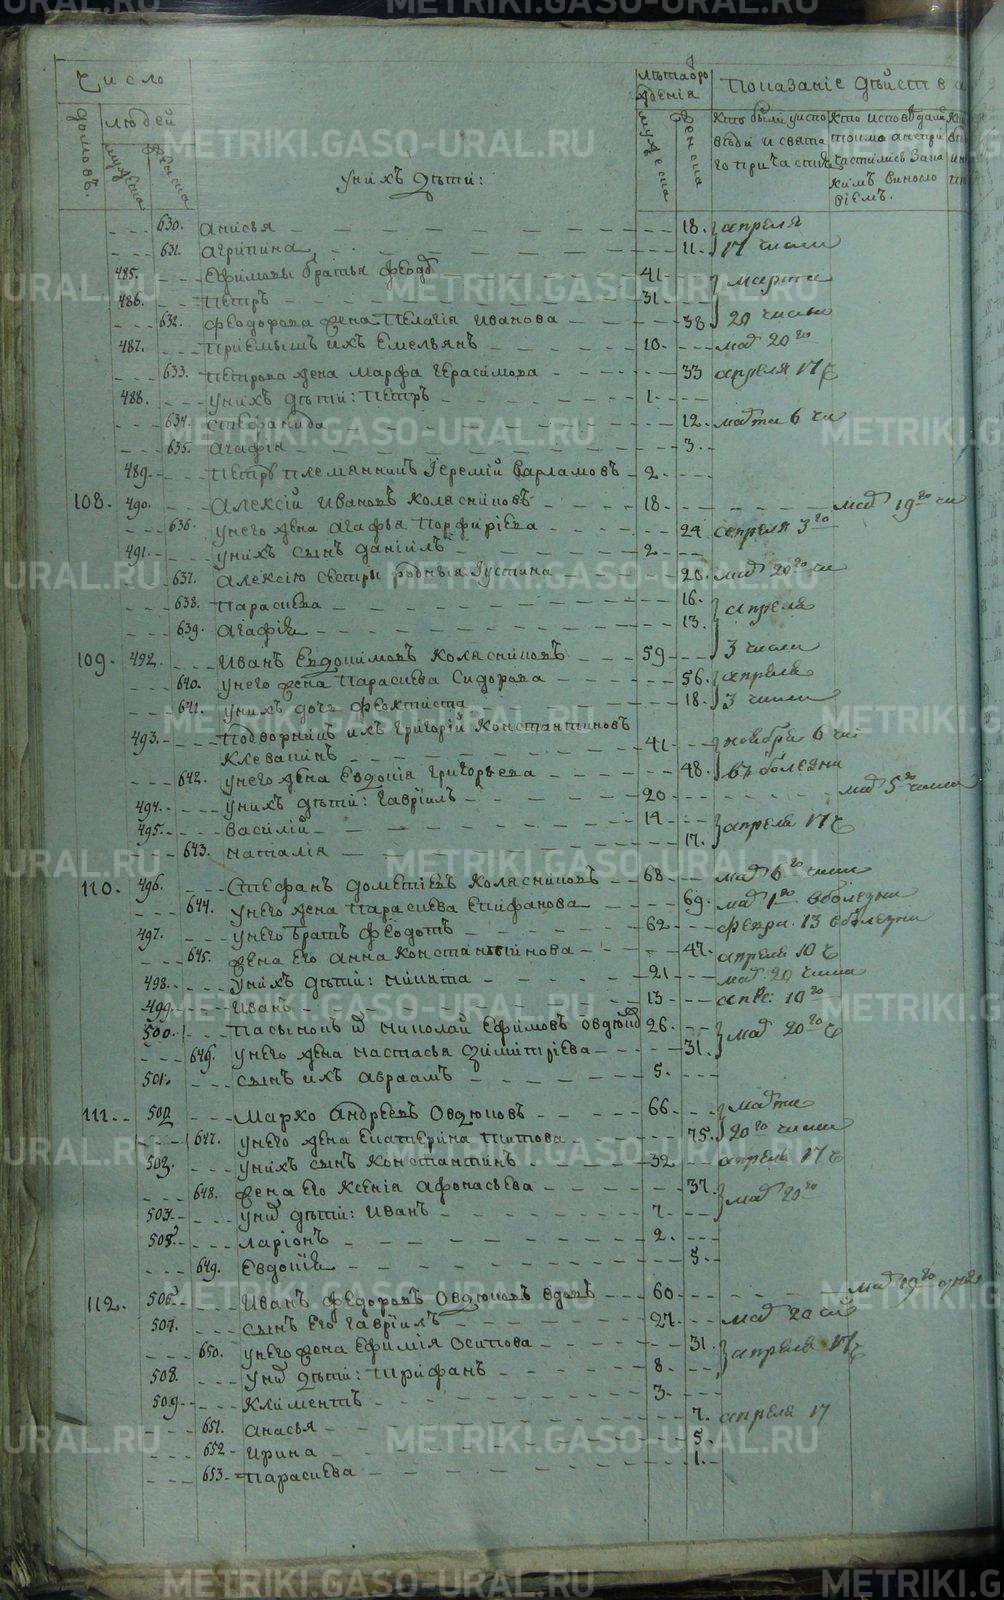 Число
Лѣта рожденія
Показаніе дѣйства
домовъ.
людей
мужеска
женска
мужеска
женска
Кто были у испо
вѣди и свята
го причастія
Кто исповѣдали
У нихъ дѣти:
630. Анисья 18. апреля
631. Агрипина 11. 17 числа
485. Ефимовы братья Феодоръ 41 марта
486. Петръ 31 20 числа
632. Феодорова жена Пелагія Иванова 38
487. Приемышъ ихъ Емельянъ 10. мар 20го
633. Петрова жена Марфа Герасимова 33 апреля 17 ч
488. У нихъ дѣти: Петръ 1.
634. Стефанида 12. марта 6 чи
635. Агафія 3.
489. Петръ племянникъ Іеремій Варламовъ 2
108. 490. Алексій Ивановъ Колясниковъ 18. мар 19го чи
636. У него жена Агафья Порфиріева 24 апреля 3го
491. У нихъ сынъ Даніилъ 2
637. Алексію сестры родныя Іустина 20. мар 20го чи
638. Парасиева 16. апреля
639. Агафія 13. 3 числа
109. 492. Иванъ Евдокимовъ Колясниковъ 59
640. У него жена Парасиева Сидорова 56. апреля
641. У нихъ дочь Феоктиста 18. 3 числа
493. Подворникъ ихъ Григорій Константиновъ 41 ноября 6 чи
Клевакинъ
642. У него жена Евдокія Григорьева 48. въ болезни
494. У нихъ дѣти: Гавріилъ 20 мар 5го числа
495. Василій 14 апреля 17 ч
643. Наталія 17.
110. 496. Стефанъ Дометіевъ Колясниковъ 68 мар 6го числа
644. У него жена Парасиева Епифанова 69. мар 1го въ болезни
497. У него братъ Феодотъ 62 февра. 13 въ болезни
645. Жена его Анна Константинова 47. апреля 10 ч
498. У нихъ дѣти: Никита 21 мар 20 числа
499. Иванъ 13 апре: 10го
500. Пасынокъ Николай Ефимовъ 26. мар 20го ч
646. У него жена Настасья Димитріева 31.
501. Сынъ ихъ Авраамъ 5.
111. 502 Марко Андреевъ Овдюковъ 66. марта
647. У него жена Екатерина Титова 75. 20го числа
503. У нихъ сынъ Константинъ 32. апреля 17 ч
648. Жена его Ксенія Афонасьева 37. мар 20го
503. У них дѣти: Иванъ 7
505. Ларіонъ 2.
649. Евдокія 5
112. 506. Иванъ Федоровъ Овдюковъ вдовъ 60
507. Сынъ его Гавріилъ 27. мар 20 чи
650. У него жена Ефимія Осипова 31. апреля 17 ч
508. У них дѣти: Трифанъ 8
509. Климентъ 3.
651. Анасья 7. апреля 17
652 Ирина 5.
653. Парасиева 1.
METRIKI.GASO-URAL.RU